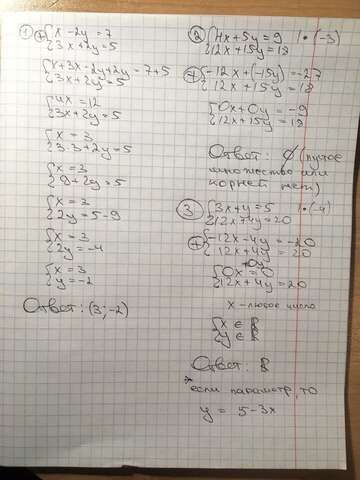 1) + { x - 2y = 7
{ 3x + 2y = 5
{ x + 3x - 2y + 2y = 7 + 5
{ 3x + 2y = 5
{ 4x = 12
{ 3x + 2y = 5
{ x = 3
{ 3·3 + 2y = 5
{ x = 3
{ 9 + 2y = 5
{ x = 3
{ 2y = 5 - 9
{ x = 3
{ 2y = -4
{ x = 3
{ y = -2
Ответ: (3; -2)
2) { 4x + 5y = 9 | · (-3)
{ 12x + 15y = 18
+ { -12x + (-15y) = -27
{ 12x + 15y = 18
{ 0x + 0y = -9
{ 12x + 15y = 18
Ответ: ∅ (пустое
множество или
корней нет)
3) { 3x + y = 5 | · (-4)
{ 12x + 4y = 20
+ { -12x - 4y = -20
{ 12x + 4y = 20
+0y
{ 0x = 0
{ 12x + 4y = 20
x - любое число
{ x ∈ R
{ y ∈ R
Ответ: R
* если параметр, то
y = 5 - 3x